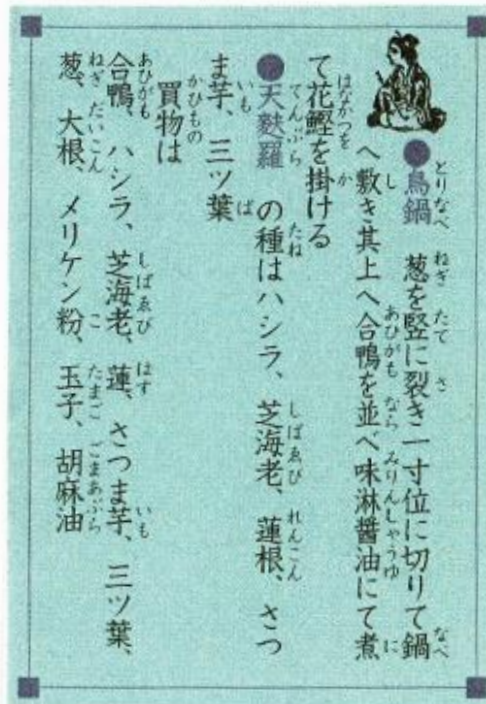 ●鳥鍋　葱を竪に裂き一寸位に切りて鍋
へ敷き其上へ合鴨を並べ味淋醤油にて煮
て花鰹を掛ける
●天麩羅　の種はハシラ、芝海老、蓮根、さつ
ま芋、三ツ葉
買物は
合鴨、ハシラ、芝海老、蓮、さつま芋、三ツ葉、
葱、大根、メリケン粉、玉子、胡麻油